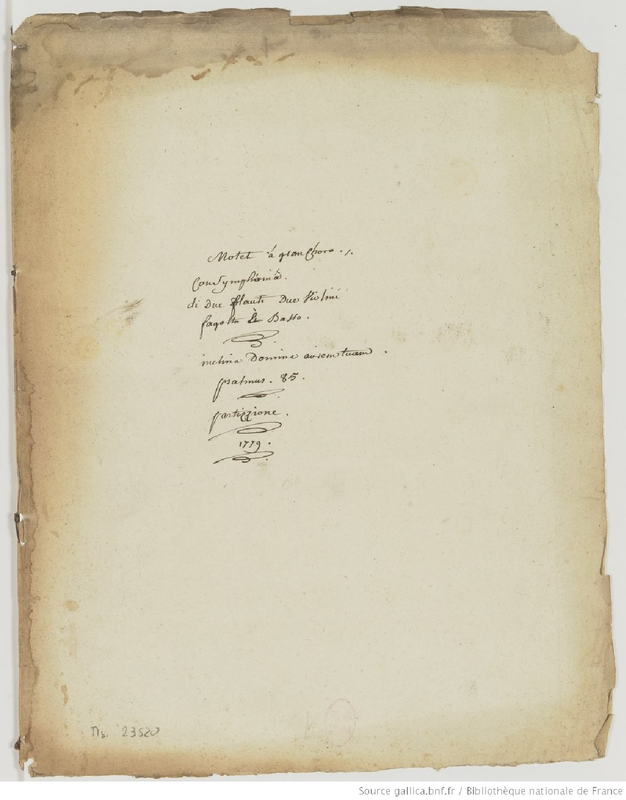 Motet à gran Choro ./.
Con Symphonia.
di Due flauti Due Violini
fagotto È Basso.
inclina Domine aurem tuam.
psalmus. 85.
partizione.
1779.
Ms. 23520
Source gallica.bnf.fr / Bibliothèque nationale de France